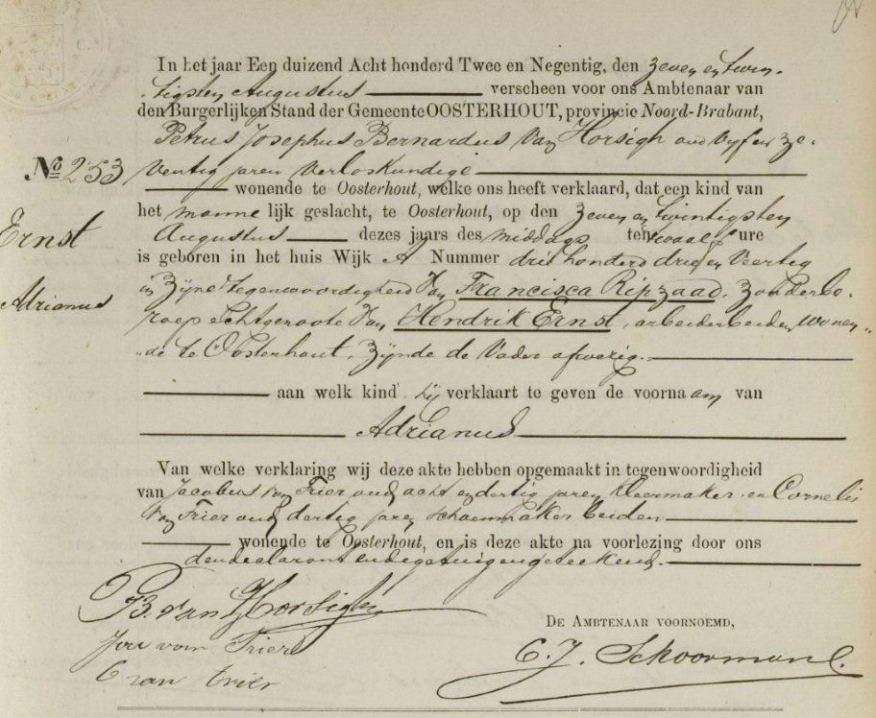 In het jaar Een duizend Acht honderd Twee en Negentig, den zeven en twin-
tigsten Augustus verscheen voor ons Ambtenaar van
den Burgerlijken Stand der Gemeente OOSTERHOUT, provincie Noord-Brabant,
Petrus Josephus Bernardus Van Horsigh oud vijf en ze-
ventig jaren Verloskundige
wonende te Oosterhout, welke ons heeft verklaard, dat een kind van
het manne lijk geslacht, te Oosterhout, op den zeven en twintigsten
Augustus dezes jaars des middags ten twaalf ure
is geboren in het huis Wijk A Nummer drie honderd drie en Veertig
in Zijne tegenwoordigheid Van Francisca Ripzaad, zonder be-
roep Echtgenoote Van Hendrik Ernst, arbeider beiden wonen-
de te Oosterhout, Zijnde de Vader afwezig.
aan welk kind hij verklaart te geven de voornaam van
Adrianus
Van welke verklaring wij deze akte hebben opgemaakt in tegenwoordigheid
van Jacobus van Trier oud acht en dertig jaren kleermaker en Cornelis
van Trier oud dertig jaren schoenmaker beiden
wonende te Oosterhout, en is deze akte na voorlezing door ons
den declarant en de getuigen geteekend.
No 253
Ernst
Adrianus
B. van Horsigh
DE AMBTENAAR VOORNOEMD,
van Trier
C van trier
C. J. Schoormans